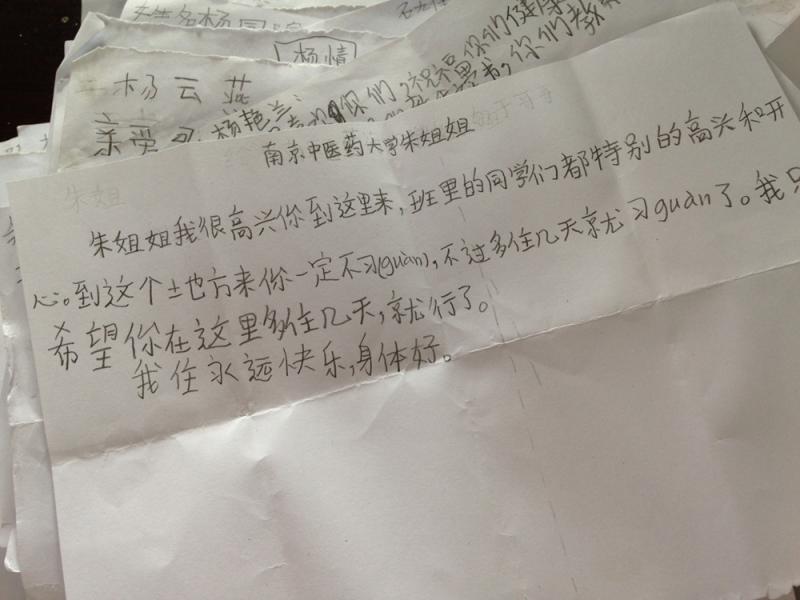 杨情
杨云燕
亲爱
杨艳兰
你们,祝福你们健康
你们教
南京中医药大学朱姐姐
朱姐
朱姐姐我很高兴你到这里来,班里的同学们都特别的高兴和开
心。到这个土地方来你一定不习(guàn),不过多住几天就习guàn了。我只
希望你在这里多住几天,就行了。
我住永远快乐,身体好。